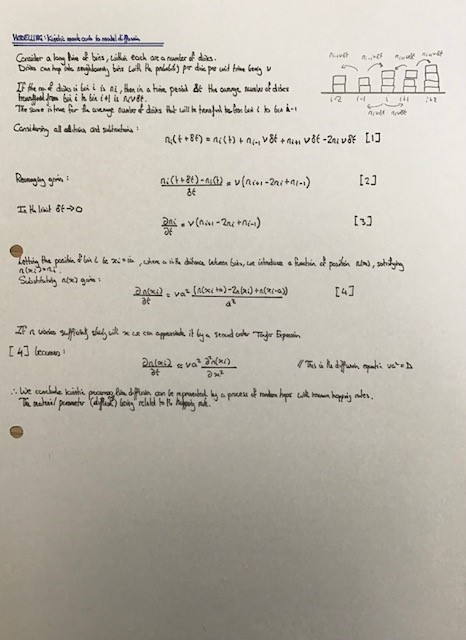 MODELLING: Kinetic monte carlo to model diffusion
Consider a long line of bins, within each are a number of discs.
Discs can hop into neighbouring bins with the probability per disc per unit time being ν
If the no of discs in bin i is ni, then in a time period δt the average number of discs
transferred from bin i to bin i+1 is niνδt.
The same is true for the average number of discs that will be transferred to from bin i to bin i-1
ni-1νδt ni+1νδt
i-2 i-1 i i+1 i+2
niνδt niνδt
Considering all additions and subtractions:
ni(t+δt) = ni(t) + ni-1 νδt + ni+1 νδt - 2ni νδt [1]
Rearranging gives:
ni(t+δt) - ni(t) / δt = ν(ni+1 - 2ni + ni-1) [2]
In the limit δt→0
∂ni/∂t = ν(ni+1 - 2ni + ni-1) [3]
Letting the position of bin i be xi = ia, where a is the distance between bins, we introduce a function of position n(x), satisfying
n(xi) = ni.
Substituting n(x) gives:
∂n(xi)/∂t = νa² (n(xi+a) - 2n(xi) + n(xi-a))/a² [4]
If n varies sufficiently slowly with x we can approximate it by a second order Taylor Expansion
[4] becomes:
∂n(xi)/∂t ≈ νa² ∂²n(xi)/∂x² // This is the diffusion equation νa² = D
∴ We conclude kinetic processes like diffusion can be represented by a process of random hops with known hopping rates.
The material parameter (diffusivity) being related to the hopping rate.